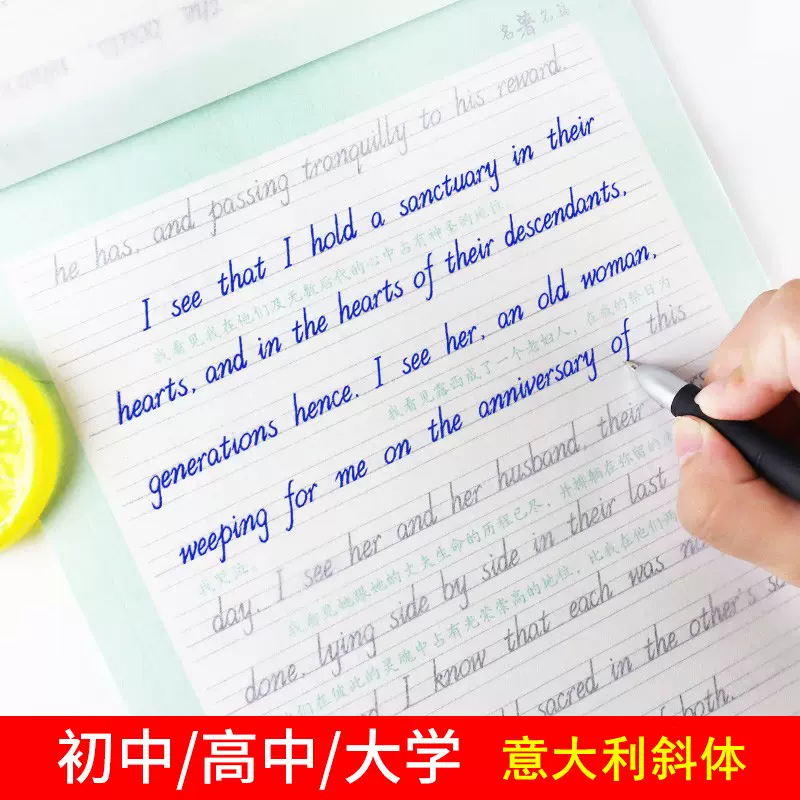 名著名篇
he has, and passing tranquilly to his reward.
I see that I hold a sanctuary in their
我看见我在他们及无数后代的心中占有神圣的地位。
hearts, and in the hearts of their descendants,
generations hence. I see her, an old woman,
我看见露西成了一个老妇人，在我的祭日为
weeping for me on the anniversary of this
我哭泣。
day. I see her and her husband, their
我看见她跟她的丈夫生命的历程已尽，并排躺在弥留的
done, lying side by side in their last
们在彼此的灵魂中占有光荣崇高的地位，比我在他们两
I know that each was
sacred in the other's
both.
初中/高中/大学 意大利斜体